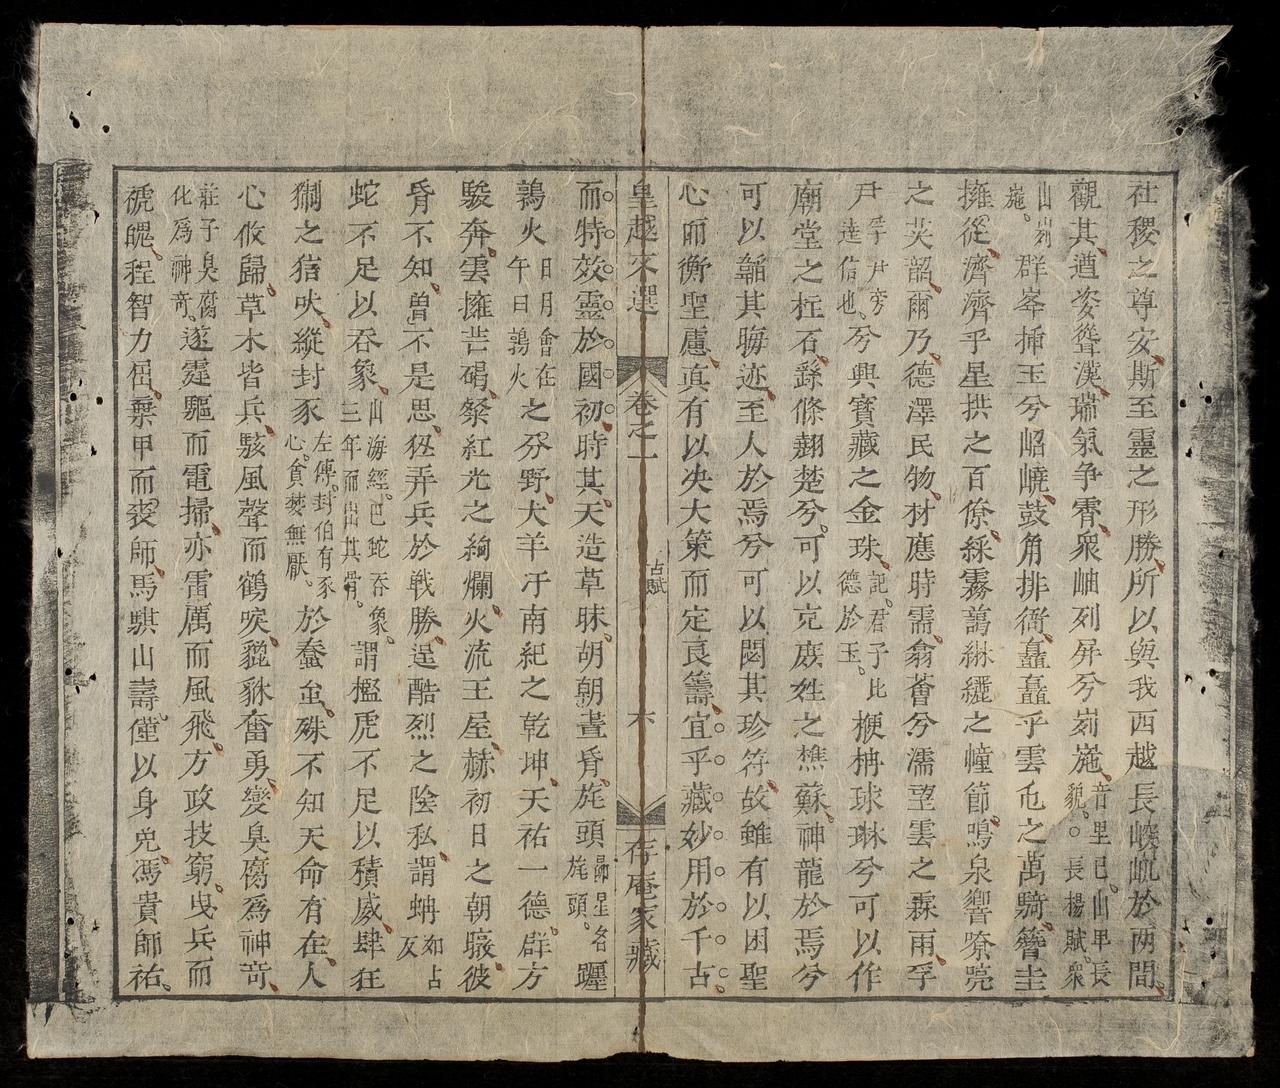 社稷之尊安斯至靈之形勝所以與我西越長峻㟁於两間
觀其遒姿聳漢瑞氣争霄衆岫列屏兮峛崺音里已山卑長貌○長楊賦衆
山峛崺群峯揷玉兮岹嶢鼓角排衙矗矗乎雲屯之萬騎簪圭
擁從濟濟乎星拱之百僚綵霧藹綝纚之幢節鳴泉響嘹亮
之英韶爾乃德澤民物材應時需翁薈兮濡望雲之霖雨孚
尹孚尹旁達信也兮興寶藏之金珠記君子比德於玉梗柟球琳兮可以作
廟堂之柱石繇條翹楚兮可以克庶姓之樵蘇神龍於焉兮
可以韜其晦迹至人於焉兮可以閟其珍符故雖有以困聖
心而衡聖慮真有以决大策而定良籌宜乎藏妙用於千古
皇越文選 卷之一 古賦 六 存庵家藏
而特效靈於國初時其天造草昧胡朝晝昏旄頭昴星名旄頭躔
鶉火日月會在午曰鶉火之分野犬羊汙南紀之乾坤天祐一德群方
駿奔雲擁芒碭祭紅光之絢爛火流王屋赫初日之朝暾彼
昏不知曽不是思狃弄兵於戦勝逞酷烈之陰私謂蚺如占反
蛇不足以吞象山海經巴蛇吞象三年而出其骨謂檻虎不足以積威肆狂
猘之狺吠縱封豕左傳封伯有豕心貪婪無厭於蚕虿殊不知天命有在人
心攸歸草木皆兵駭風聲而鶴唳貔貅奮勇變臭腐爲神竒
莊子臭腐化爲神竒遂霆驅而電掃亦雷厲而風飛方政技窮曳兵而
褫魄程智力屈棄甲而䘮師馬騏山壽僅以身免馮貴師祐